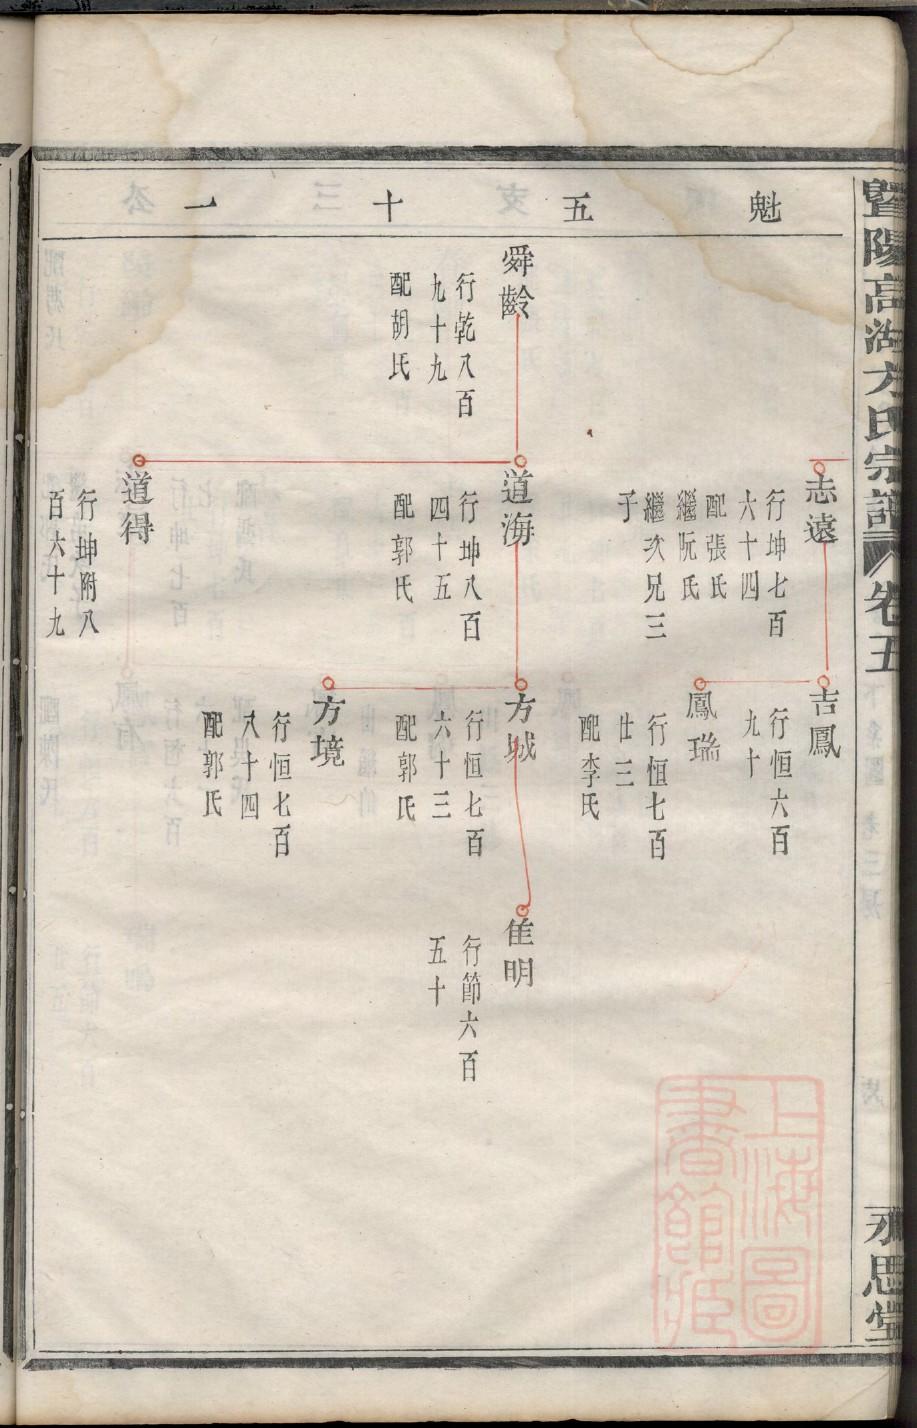 暨陽高湖方氏宗譜 卷五
永思堂
魁五十一
志遠
行坤七百
六十四
配張氏
繼阮氏
繼次兄三
子
吉鳳
行恒六百
九十
鳳瑞
行恒七百
廿三
配李氏
舜齡
行乾八百
九十九
配胡氏
道海
行坤八百
四十五
配郭氏
方城
行恒七百
六十三
配郭氏
隹明
行節六百
五十
方境
行恒七百
八十四
配郭氏
道得
行坤附八
百六十九
上海圖
書館藏